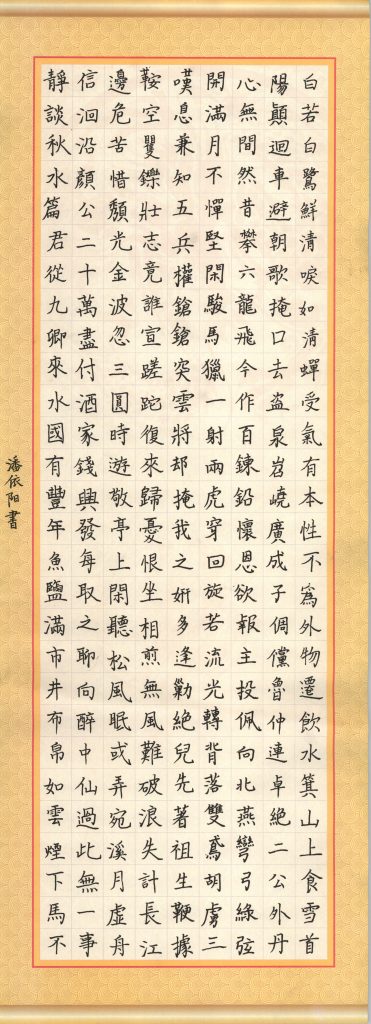 白若白鷺鮮清唳如清蟬受氣有本性不為外物遷飲水箕山上食雪首
陽顛迴車避朝歌掩口去盜泉岧嶢廣成子倜儻魯仲連卓絕二公外丹
心無間然昔攀六龍飛今作百鍊鉛懷恩欲報主投佩向北燕彎弓綠弦
開滿月不憚堅閑駿馬獵一射兩虎穿回旋若流光轉背落雙鳶胡虜三
嘆息兼知五兵權鎗鎗突雲將却掩我之妍多逢勦絕兒先著祖生鞭據
鞍空矍鑠壯志竟誰宣蹉跎復來歸憂恨坐相煎無風難破浪失計長江
邊危苦惜頹光金波忽三圓時遊敬亭上閑聽松風眠或弄宛溪月虛舟
信洄沿顏公二十萬盡付酒家錢興發每取之聊向醉中仙過此無一事
靜談秋水篇君從九卿來水國有豐年魚鹽滿市井布帛如雲煙下馬不
潘依阳書